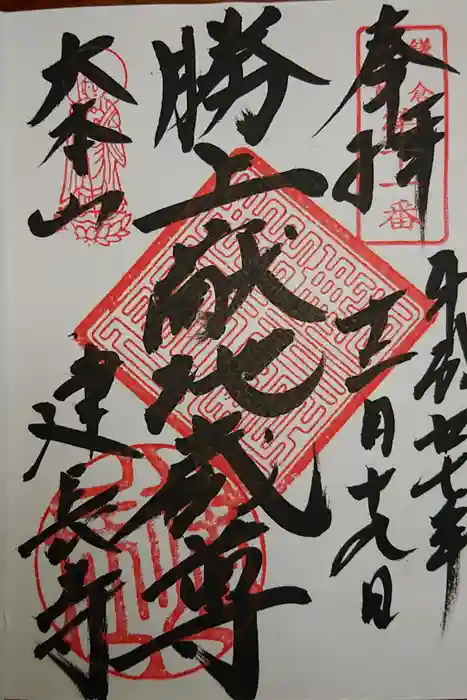 奉拝
平成廿七年
十一月十九日
勝上献地蔵尊
大本山
建長寺
鎌倉
番